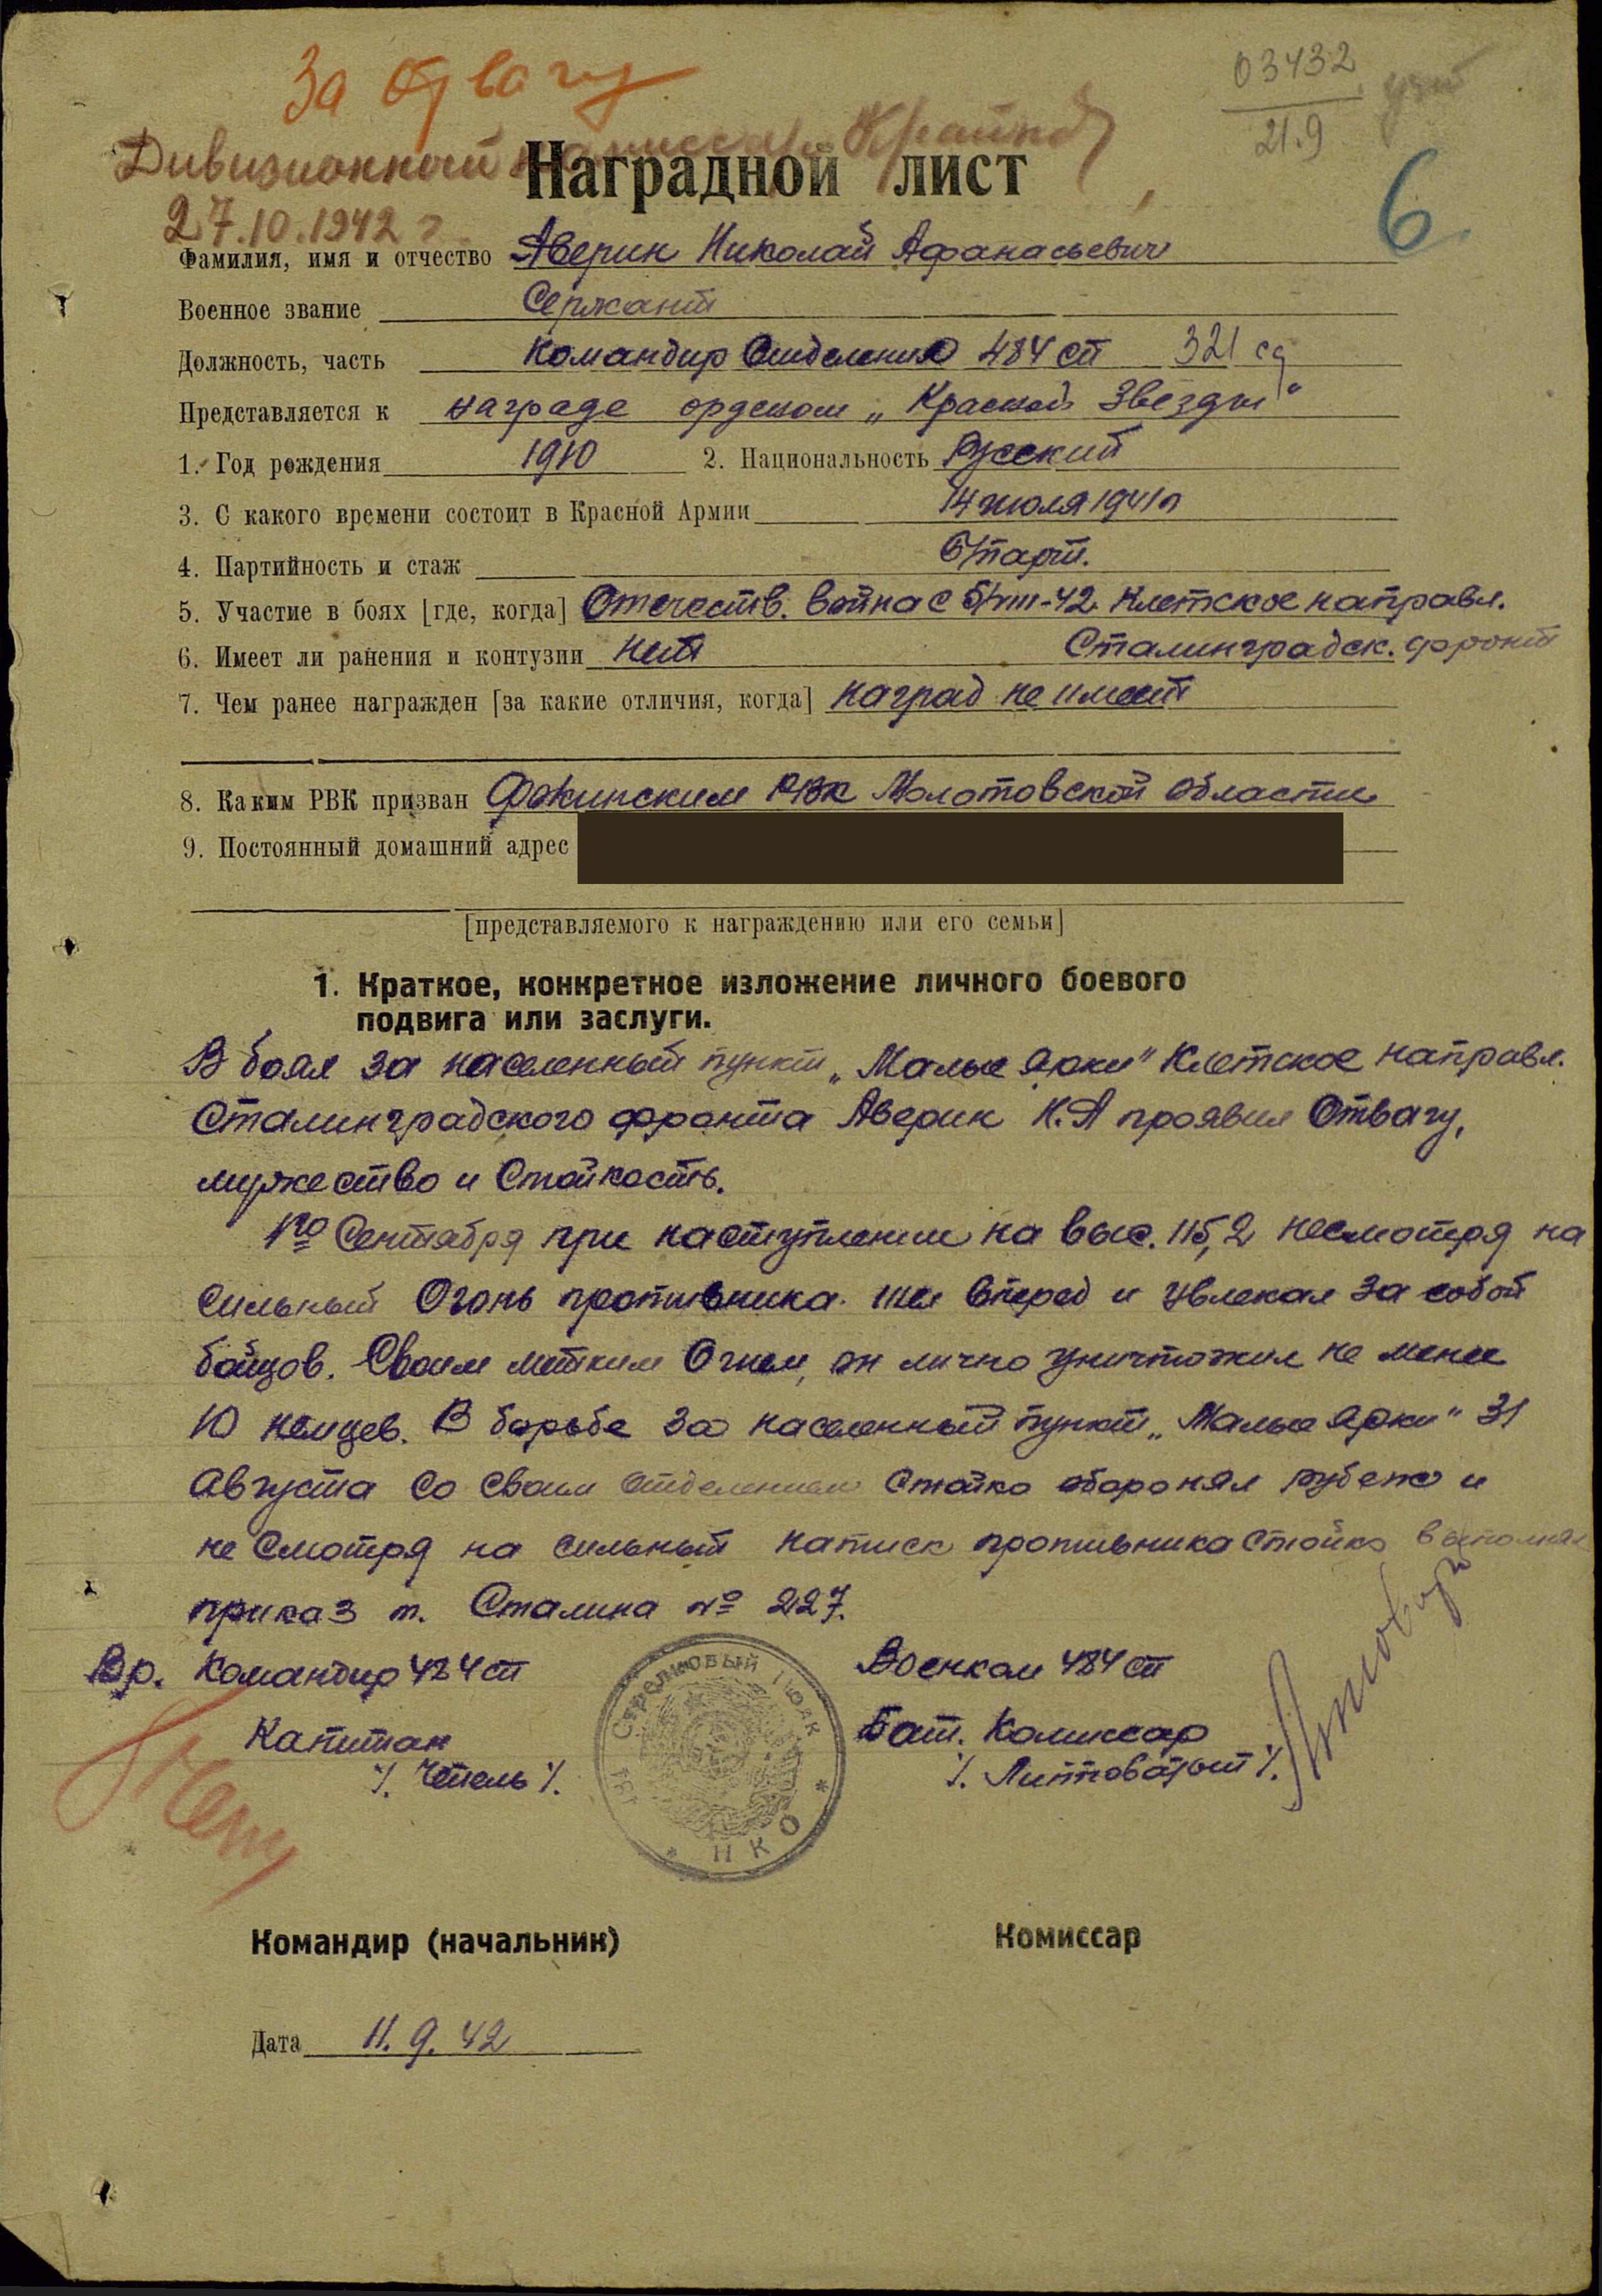 За отвагу
03432
21.9
Дивизионный комиссар
27.10.1942 г
6
Наградной лист
Фамилия, имя и отчество Аверин Николай Афанасьевич
Военное звание Сержант
Должность, часть Командир Отделения 484 сп 321 сд
Представляется к награде орденом „Красной Звезды“
1. Год рождения 1910 2. Национальность Русский
3. С какого времени состоит в Красной Армии 14 июля 1941 г
4. Партийность и стаж б/парт.
5. Участие в боях [где, когда] Отечеств. война с 5/VIII-42 Клетское направл.
6. Имеет ли ранения и контузии нет Сталинградск. фронт
7. Чем ранее награжден [за какие отличия, когда] наград не имеет
8. Каким РВК призван РВК Молотовской области
9. Постоянный домашний адрес
[представляемого к награждению или его семьи]
1. Краткое, конкретное изложение личного боевого
подвига или заслуги.
В боях за населенный пункт „Малые Ярки“ Клетское направл.
Сталинградского фронта Аверин Н.А проявил Отвагу,
мужество и Стойкость.
1го Сентября при наступлении на выс. 115,2 несмотря на
сильный Огонь противника шел вперед и увлекал за собой
бойцов. Своим метким Огнем, он лично уничтожил не менее
10 немцев. В борьбе за населенный пункт „Малые Ярки“ 31
Августа со своим отделением Стойко оборонял рубеж и
не Смотря на сильный натиск противника стойко выполнял
приказ т. Сталина № 227.
Вр. Командир 484 сп Военком 484 сп
Капитан Бат. Комиссар
СТРЕЛКОВЫЙ ПОЛК
* НКО *
Командир (начальник) Комиссар
Дата 11.9.42